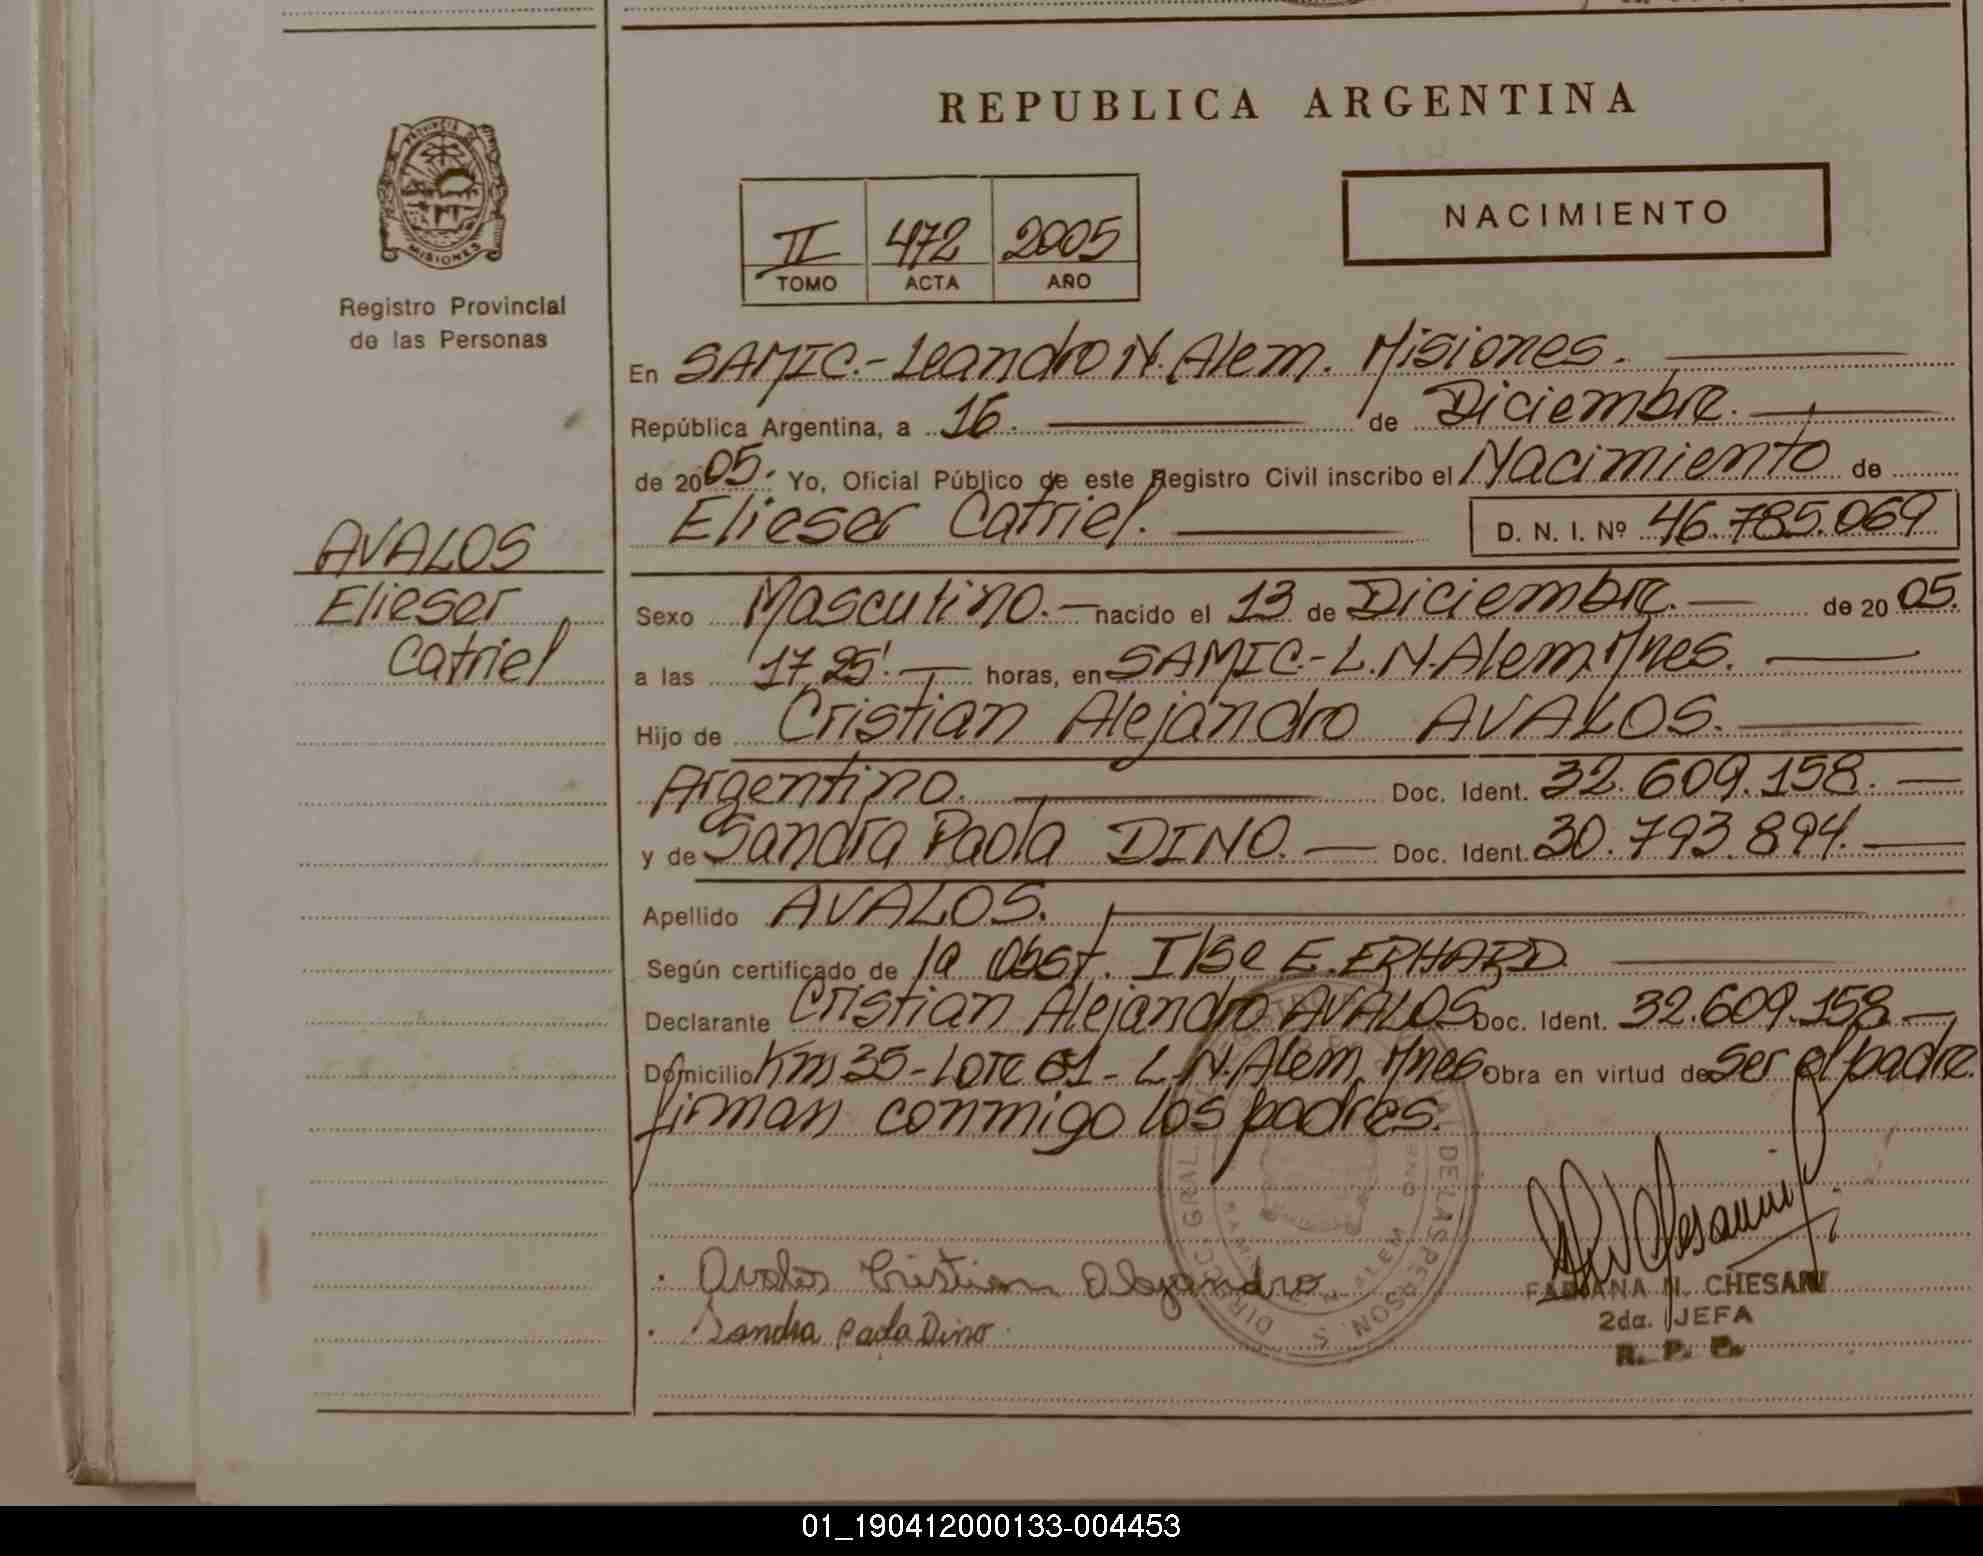 REPUBLICA ARGENTINA
PROVINCIA DE
MISIONES
Registro Provincial
de las Personas
II 472 2005
TOMO ACTA AÑO
NACIMIENTO
En SAMIC.- Leandro N. Alem. Misiones.
República Argentina, a 16. de Diciembre.
de 2005. Yo, Oficial Público de este Registro Civil inscribo el Nacimiento de
Elieser Catriel. D. N. I. Nº 46.785.069
AVALOS
Elieser
Catriel
Sexo Masculino.- nacido el 13 de Diciembre.- de 20 05.
a las 17,25'.- horas, en SAMIC.- L.N. Alem. Mnes.
Hijo de Cristian Alejandro AVALOS.
Argentino. Doc. Ident. 32.609.158.-
y de Sandra Paola DINO.- Doc. Ident. 30.793.894.-
Apellido AVALOS.
Según certificado de la Obst. Ilse E. ERHARD
Declarante Cristian Alejandro AVALOS Doc. Ident. 32.609.158-
Domicilio Km 35 - Lote 61 - L.N. Alem, Mnes Obra en virtud de ser el padre.
firman conmigo los padres.
Avalos Cristian Alejandro
Sandra Paola Dino
FABIANA N. CHESANI
2da. JEFA
R. P. P.
01_190412000133-004453